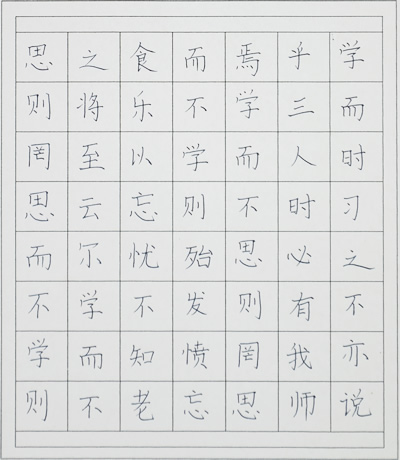 学而时习之不亦说
乎三人时必有我师
焉学而不思则罔思
而不学则殆发愤忘
食乐以忘忧不知老
之将至云尔学而不
思则罔思而不学则